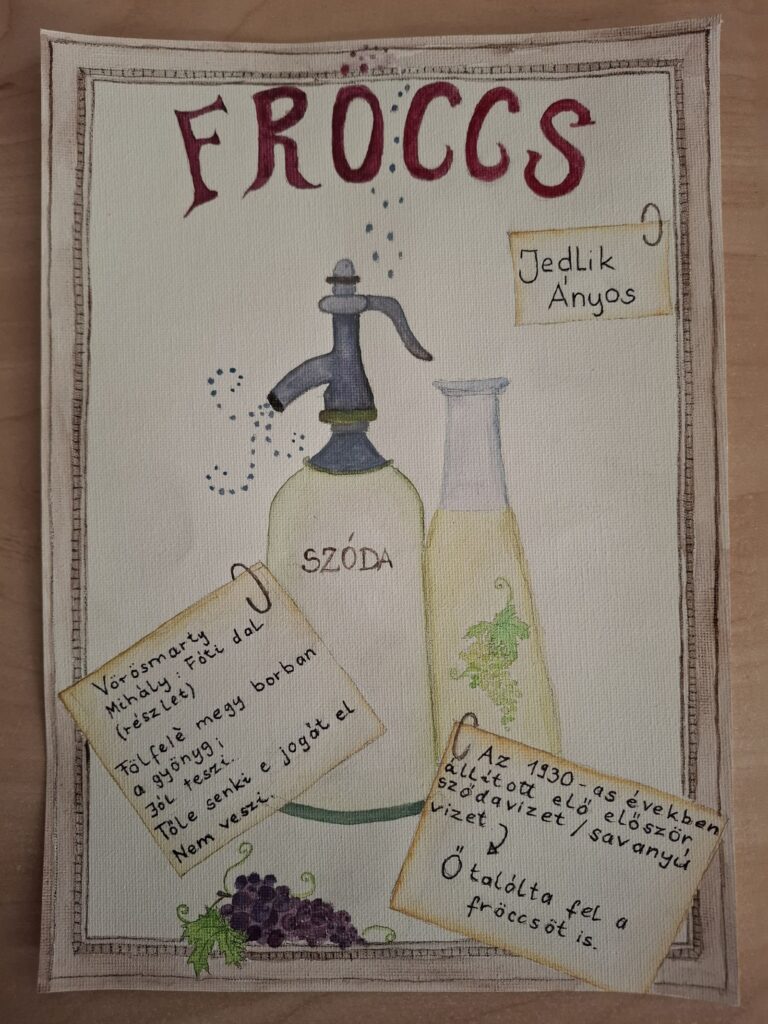 FRÖCCS
Jedlik
Ányos
SZÓDA
Vörösmarty
Mihály: Fóti dal
(részlet)
Fölfelè megy borban
a gyöngy;
Jól teszi.
Tőle senki e jogát el
Nem veszi.
Az 1930-as években
állított elő először
szódavizet/savanyú
vizet
Ő találta fel a
fröccsöt is.